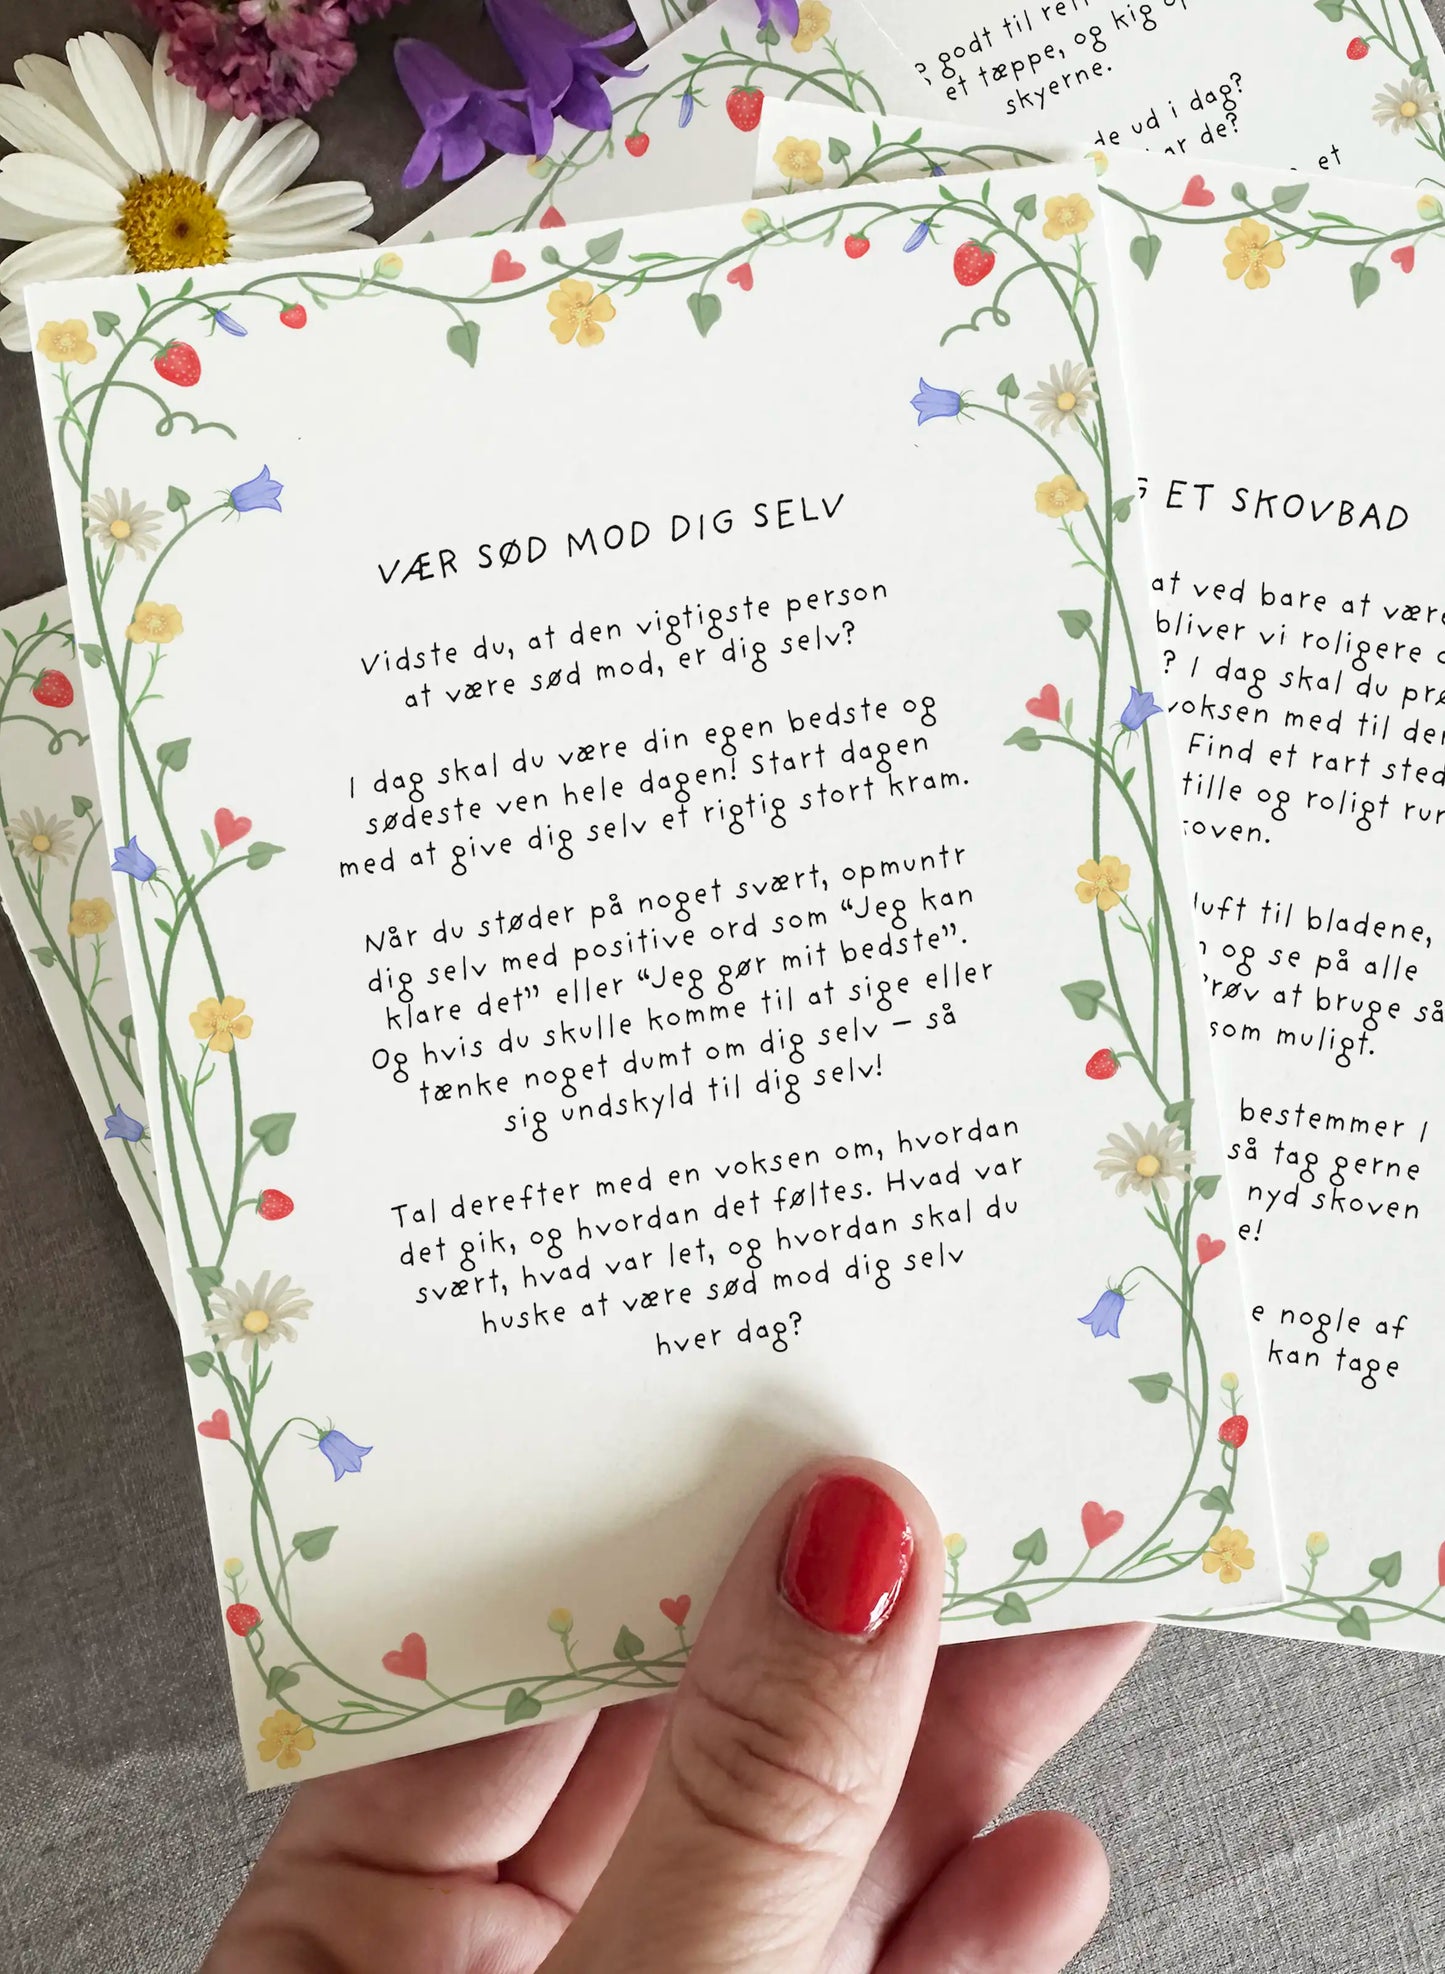 VÆR SØD MOD DIG SELV
Vidste du, at den vigtigste person
at være sød mod, er dig selv?
I dag skal du være din egen bedste og
sødeste ven hele dagen! Start dagen
med at give dig selv et rigtig stort kram.
Når du støder på noget svært, opmuntr
dig selv med positive ord som “Jeg kan
klare det” eller “Jeg gør mit bedste”.
Og hvis du skulle komme til at sige eller
tænke noget dumt om dig selv – så
sig undskyld til dig selv!
Tal derefter med en voksen om, hvordan
det gik, og hvordan det føltes. Hvad var
svært, hvad var let, og hvordan skal du
huske at være sød mod dig selv
hver dag?
godt til
et tæppe, og kig
skyerne.
ud i dag?
de?
et
ET SKOVBAD
at ved bare at være
bliver vi roligere
? I dag skal du
voksen med til
Find et rart sted
og roligt
luft til bladene,
og se på alle
at bruge så
som muligt.
bestemmer I
så tag gerne
nyd skoven
e!
nogle af
kan tage